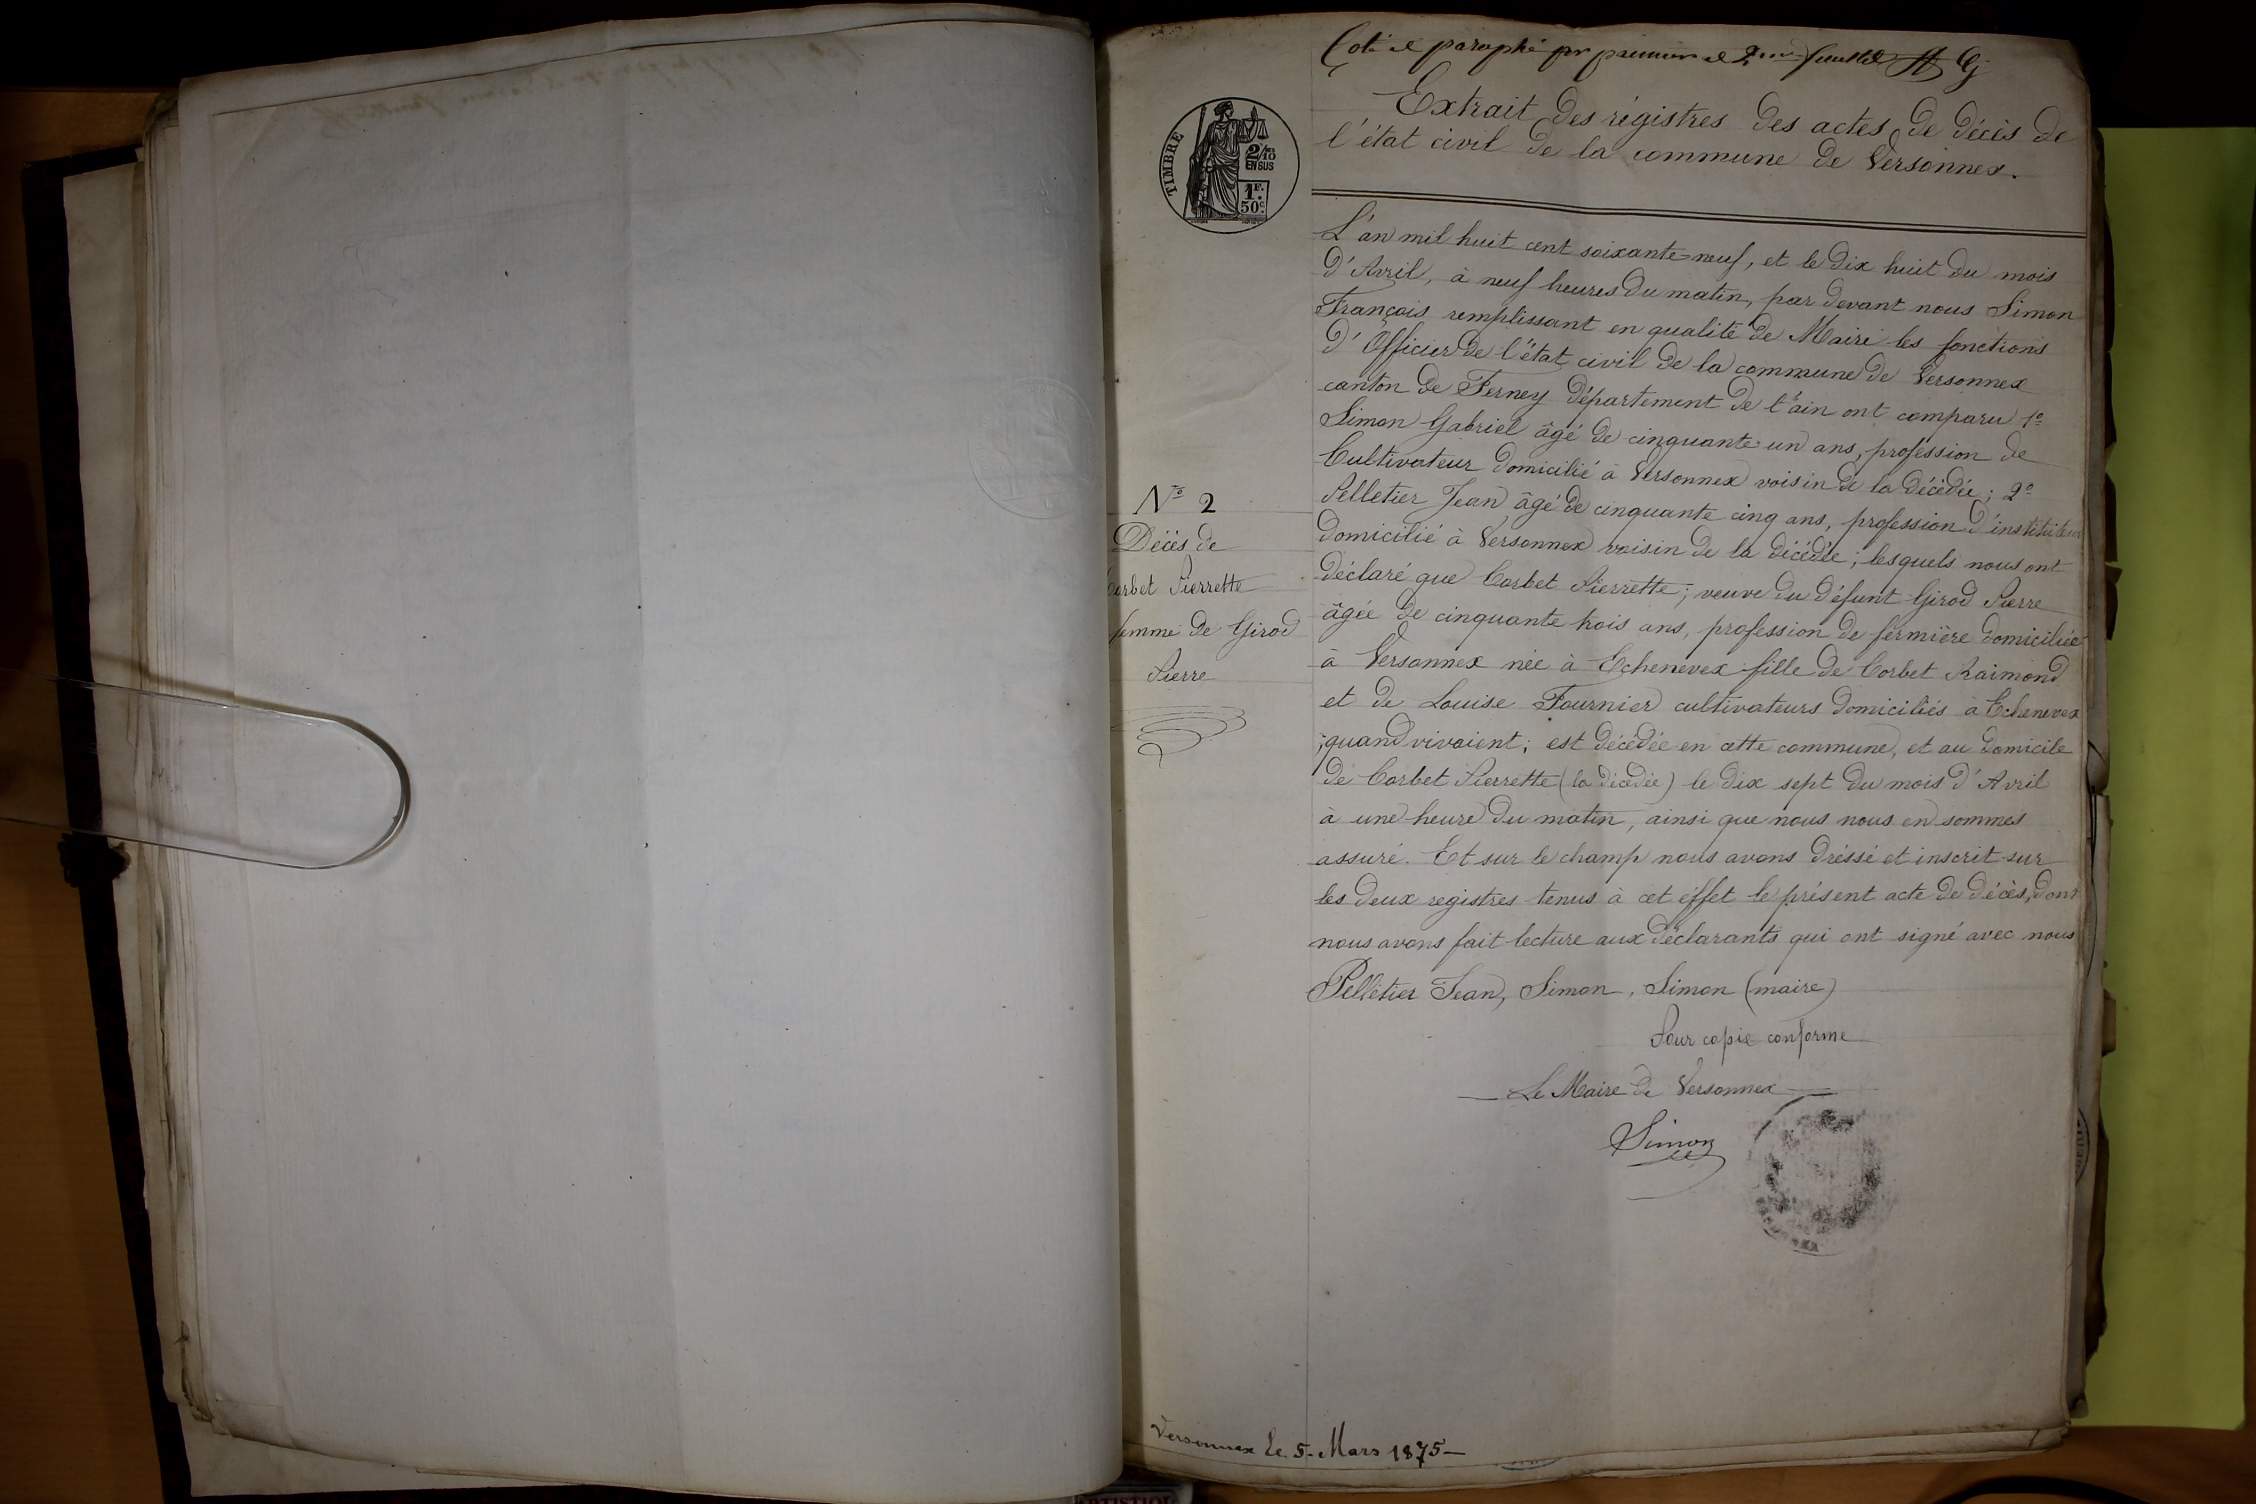 Coté et paraphé par premier et feuillet
Extrait des régistres des actes de décès de
l'état civil de la commune de Versonnex.
TIMBRE
2/10
EN SUS
1F.
50c.
L'an mil huit cent soixante-neuf, et le dix huit du mois
d'Avril, à neuf heures du matin, par devant nous Simon
François remplissant en qualité de Maire les fonctions
d'Officier de l'état civil de la commune de Versonnex
canton de Ferney département de l'ain ont comparu 1º
Simon Gabriel âgé de cinquante un ans, profession de
Cultivateur domicilié à Versonnex voisin de la décédée; 2º
Pelletier Jean âgé de cinquante cinq ans, profession d'instituteur
domicilié à Versonnex voisin de la décédée; lesquels nous ont
déclaré que Corbet Pierrette; veuve du défunt Girod Pierre
âgée de cinquante trois ans, profession de fermière domiciliée
à Versonnex née à Echenevex fille de Corbet Raimond
et de Louise Fournier cultivateurs domiciliés à Echenevex
;quand vivaient; est décédée en cette commune, et au domicile
de Corbet Pierrette (la décédée) le dix sept du mois d'Avril
à une heure du matin, ainsi que nous nous en sommes
assuré. Et sur le champ nous avons dréssé et inscrit sur
les deux registres tenus à cet éffet le présent acte de décès, dont
nous avons fait lecture aux déclarants qui ont signé avec nous
Pelletier Jean, Simon, Simon (maire)
Pour copie conforme
Le Maire de Versonnex
Simon
Nº 2
Décès de
Corbet Pierrette
femme de Girod
Pierre
Versonnex le 5 Mars 1875